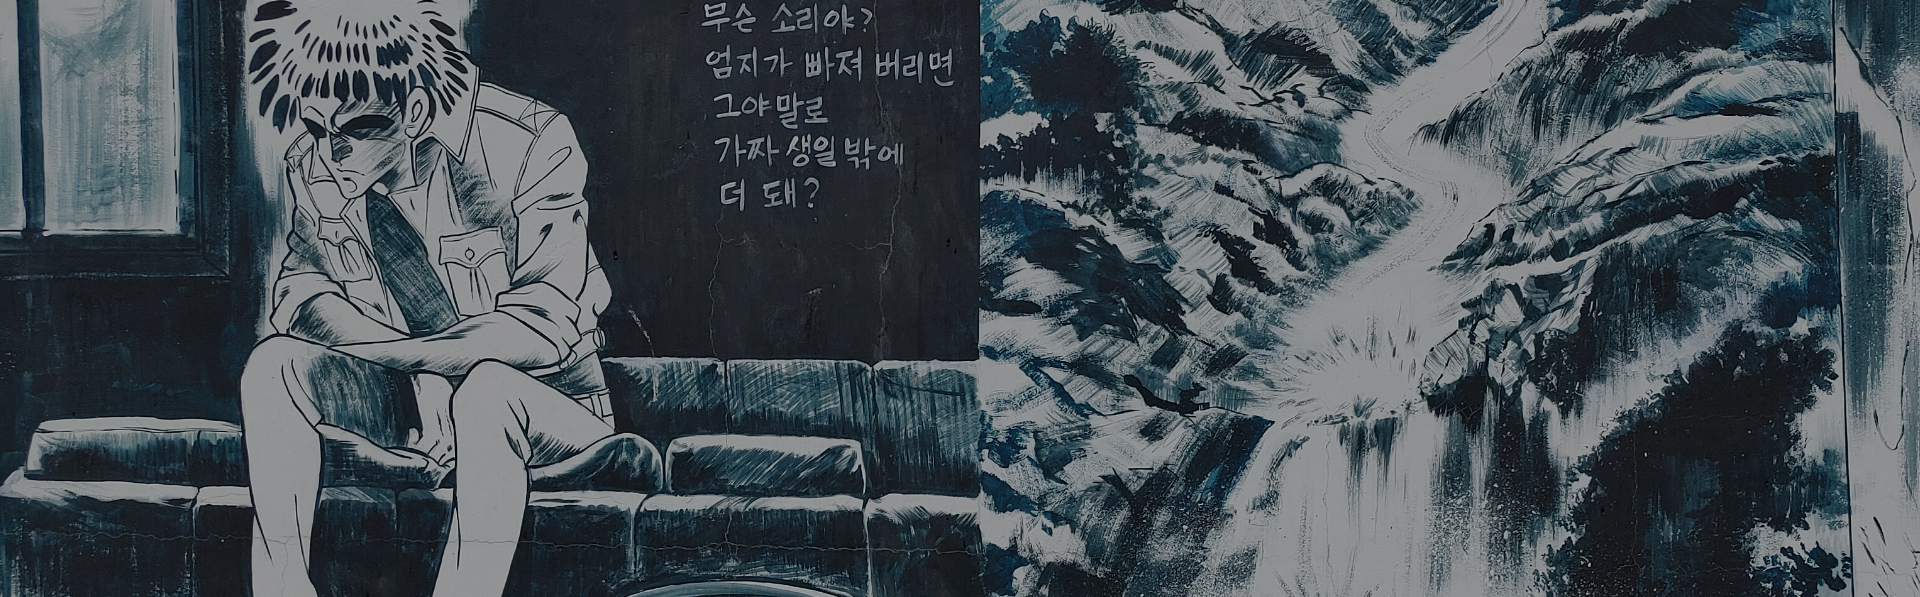 무슨 소리야?
엄지가 빠져 버리면
그야말로
가짜 생일 밖에
더 돼?